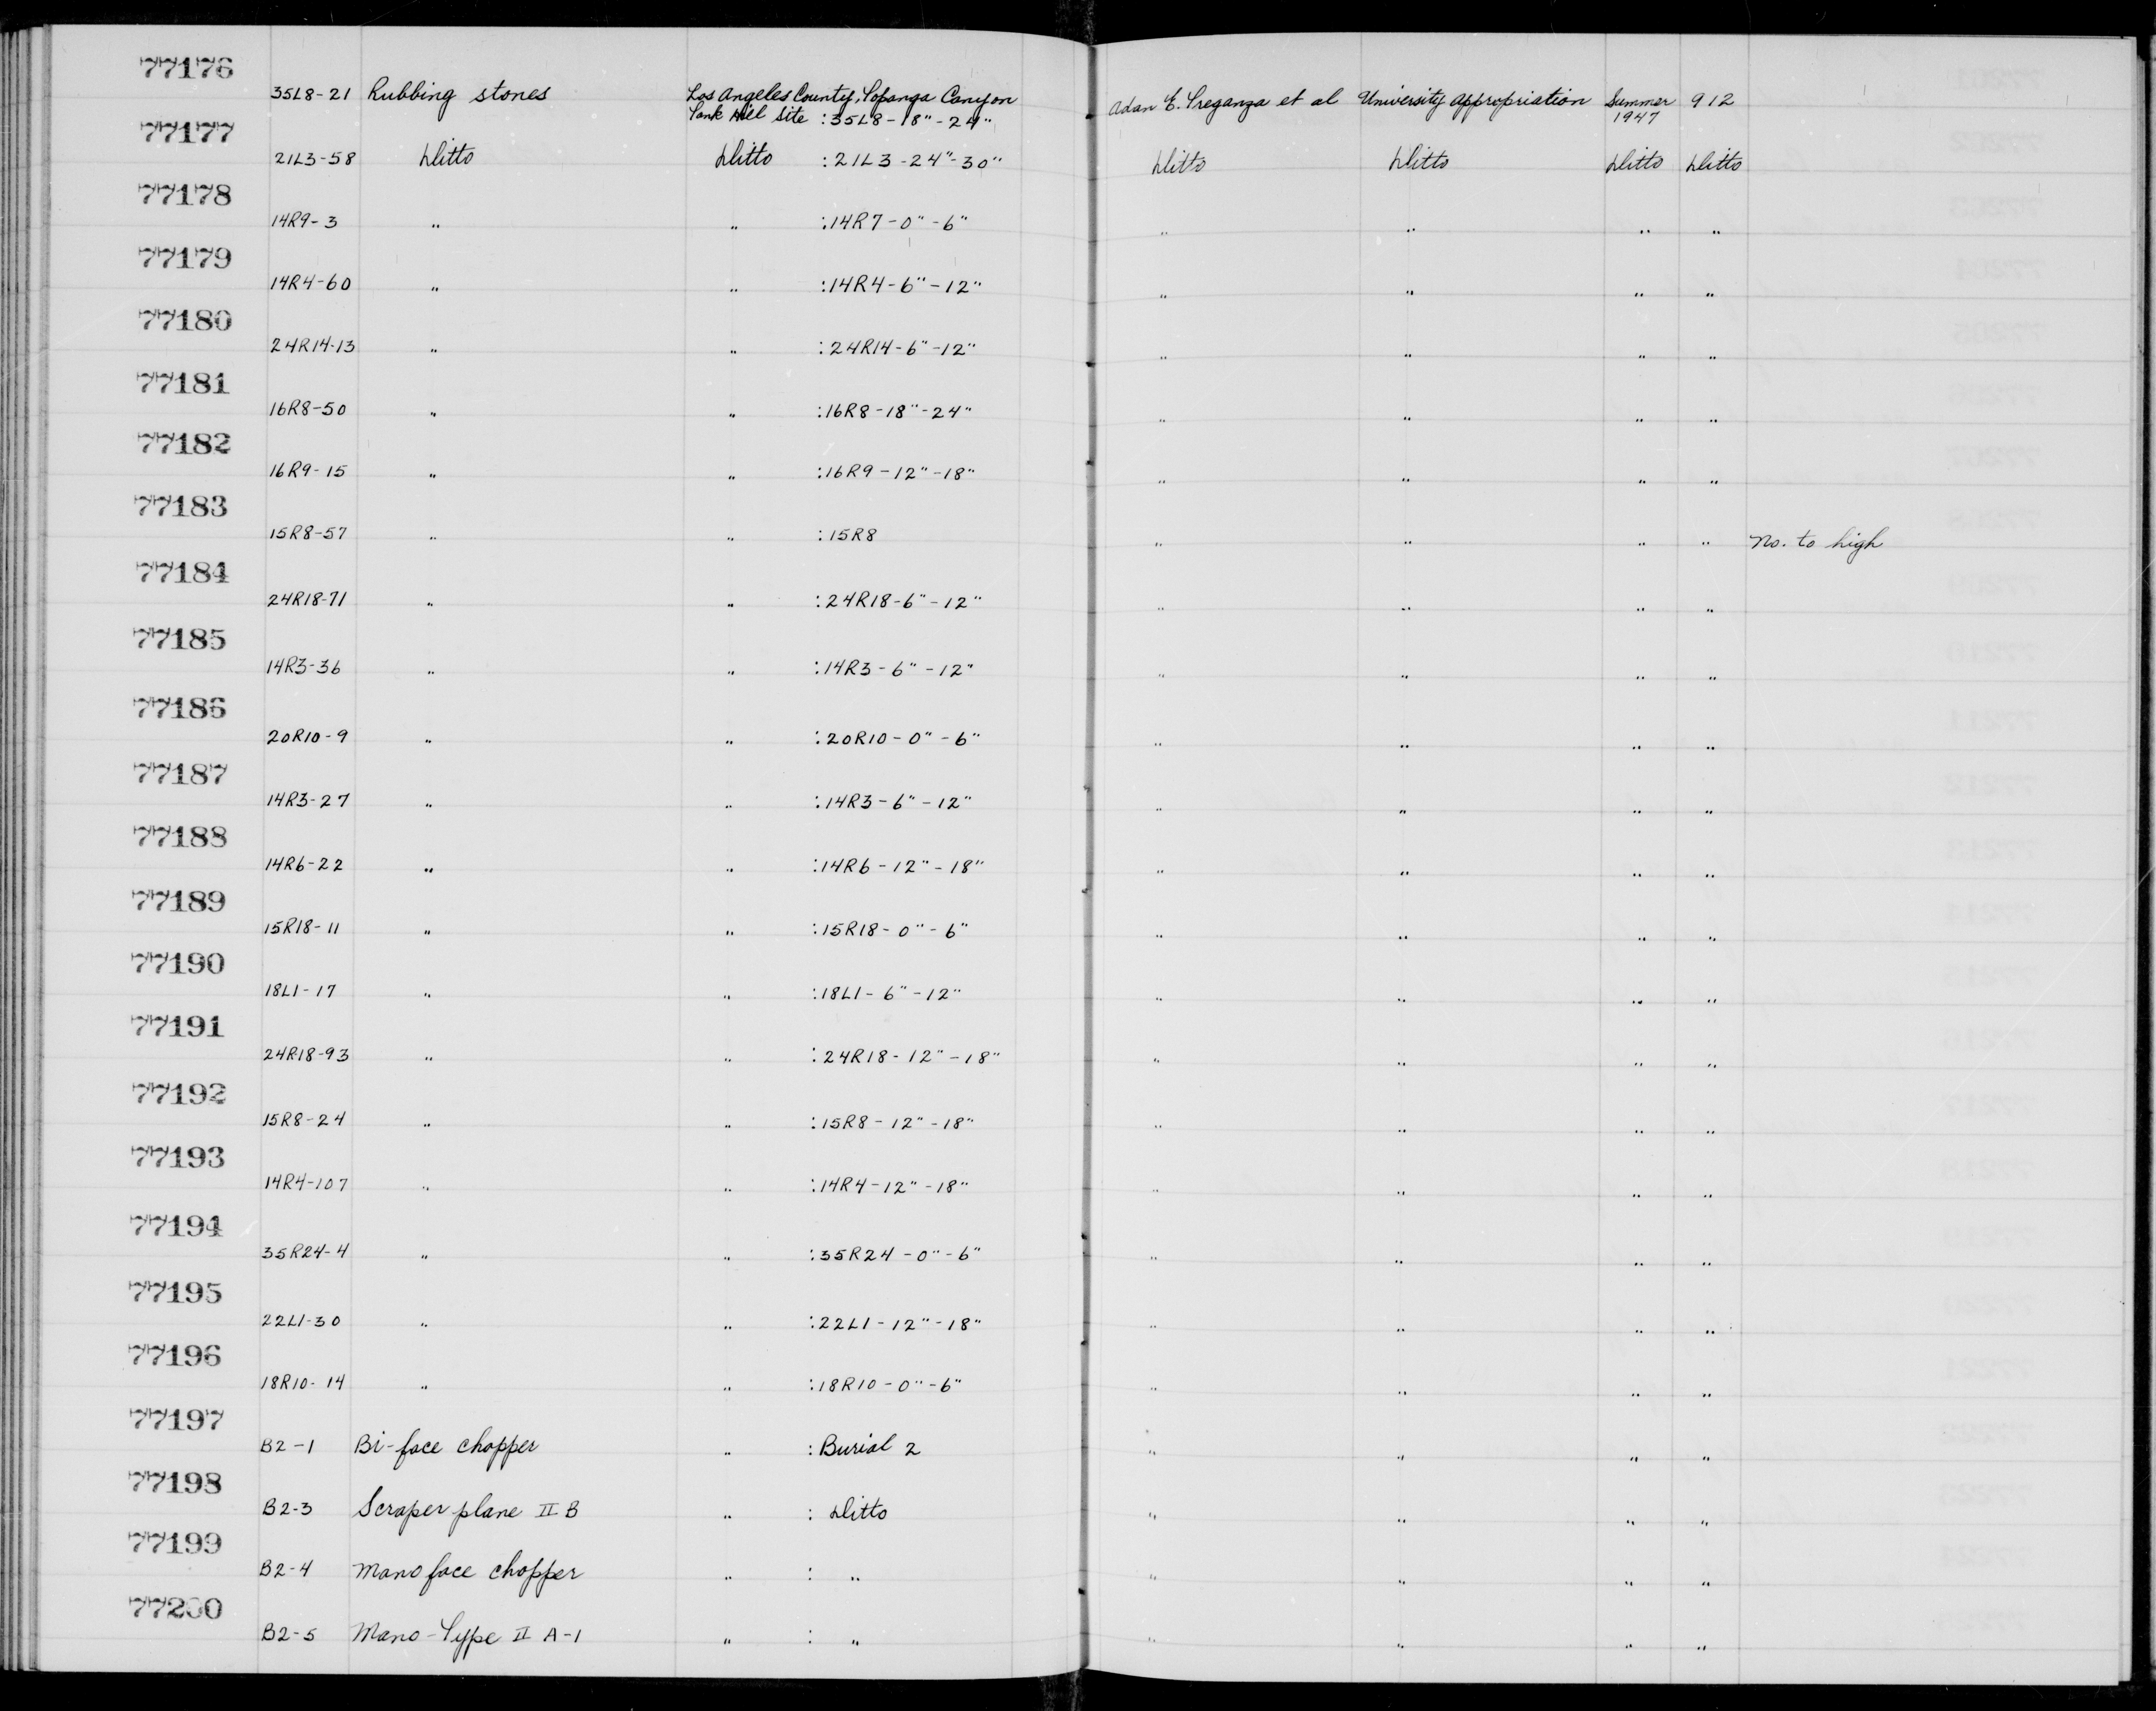 77176
35L8-21 Rubbing stones Los Angeles County, Topanga Canyon Adan E. Treganza et al University Appropriation Summer 912
Tank Hill Site :35L8-18"-24" 1947
77177
21L3-58 Ditto Ditto :21L3-24"-30" Ditto Ditto Ditto Ditto
77178
14R9-3 " " :14R7-0"-6" " " " "
77179
14R4-60 " " :14R4-6"-12" " " " "
77180
24R14-13 " " :24R14-6"-12" " " " "
77181
16R8-50 " " :16R8-18"-24" " " " "
77182
16R9-15 " " :16R9-12"-18" " " " "
77183
15R8-57 " " :15R8 " " " " No. to high
77184
24R18-71 " " :24R18-6"-12" " " " "
77185
14R3-36 " " :14R3-6"-12" " " " "
77186
20R10-9 " " :20R10-0"-6" " " " "
77187
14R3-27 " " :14R3-6"-12" " " " "
77188
14R6-22 " " :14R6-12"-18" " " " "
77189
15R18-11 " " :15R18-0"-6" " " " "
77190
18L1-17 " " :18L1-6"-12" " " " "
77191
24R18-93 " " :24R18-12"-18" " " " "
77192
15R8-24 " " :15R8-12"-18" " " " "
77193
14R4-107 " " :14R4-12"-18" " " " "
77194
35R24-4 " " :35R24-0"-6" " " " "
77195
22L1-30 " " :22L1-12"-18" " " " "
77196
18R10-14 " " :18R10-0"-6" " " " "
77197
B2-1 Bi-face chopper " :Burial 2 " " " "
77198
B2-3 Scraper plane II B " : Ditto " " " "
77199
B2-4 Mano face chopper " : " " " " "
77200
B2-5 Mano-Type II A-1 " : " " " " "